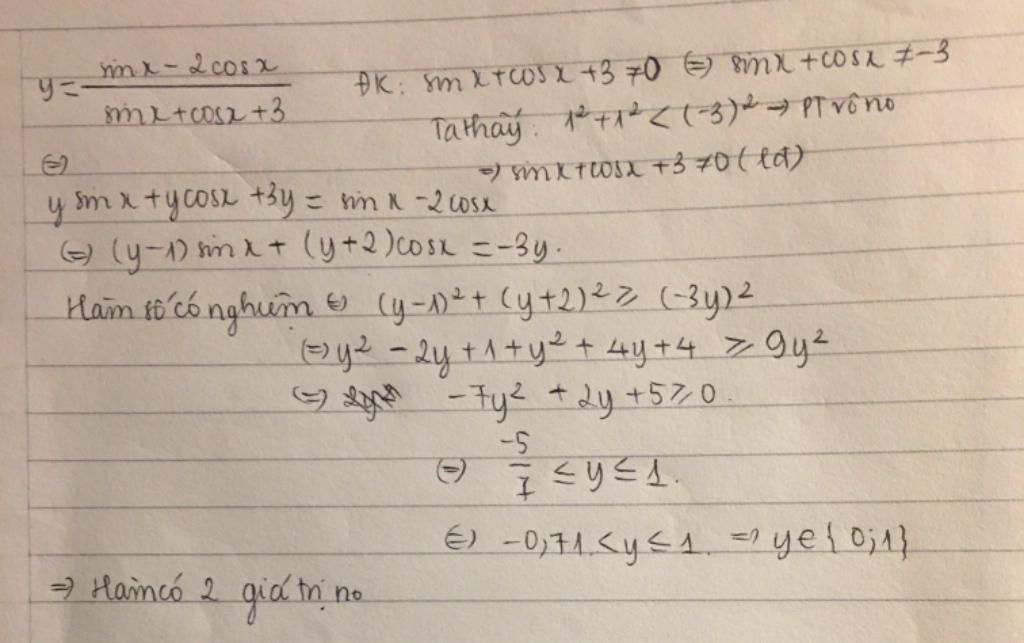 y = (sin x - 2cos x)/(sin x + cos x + 3) ĐK: sin x + cos x + 3 ≠ 0 (=) sin x + cos x ≠ -3
Ta thấy: 1² + 1² < (-3)² → PT vô no
(=) → sin x + cos x + 3 ≠ 0 (lđ)
y sin x + y cos x + 3y = sin x - 2cos x
(=) (y-1) sin x + (y+2) cos x = -3y.
Hàm số có nghiệm (=) (y-1)² + (y+2)² ≥ (-3y)²
(=) y² - 2y + 1 + y² + 4y + 4 ≥ 9y²
(=) -7y² + 2y + 5 ≥ 0.
(=) -5/7 ≤ y ≤ 1.
(=) -0,71 < y ≤ 1. => y ∈ { 0; 1 }
=> Hàm có 2 giá trị no